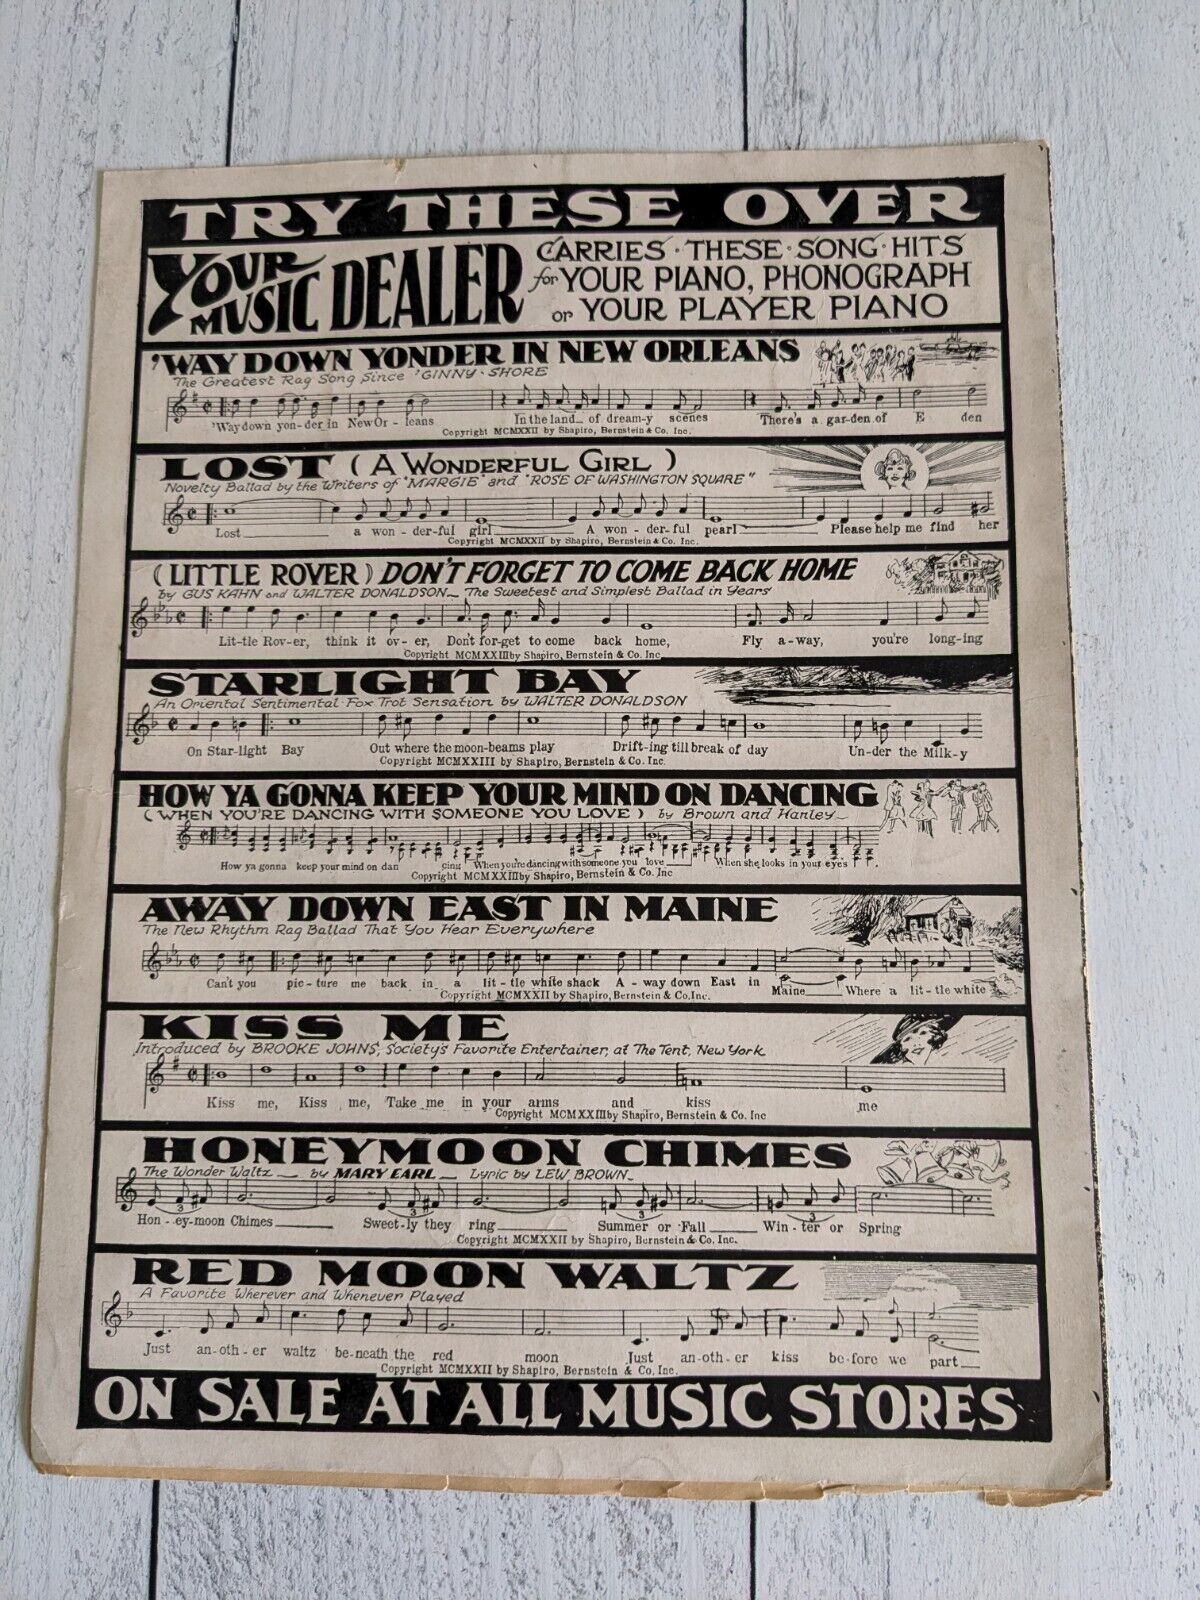 TRY THESE OVER
YOUR MUSIC DEALER
CARRIES · THESE · SONG · HITS
for YOUR PIANO, PHONOGRAPH
or YOUR PLAYER PIANO
'WAY DOWN YONDER IN NEW ORLEANS
The Greatest Rag Song Since 'GINNY-SHORE
'Way down yon-der in New Or - leans In the land_ of dream-y scenes There's a gar-den of E den
Copyright MCMXXII by Shapiro, Bernstein & Co. Inc.
LOST (A WONDERFUL GIRL)
Novelty Ballad by the Writers of "MARGIE" and "ROSE OF WASHINGTON SQUARE"
Lost____ a won - der-ful girl____ A won - der-ful pearl____ Please help me find her
Copyright MCMXXII by Shapiro, Bernstein & Co. Inc.
(LITTLE ROVER) DON'T FORGET TO COME BACK HOME
by GUS KAHN and WALTER DONALDSON_ The Sweetest and Simplest Ballad in Years
Lit-tle Rov-er, think it ov-er, Don't for-get to come back home, Fly a-way, you're long-ing
Copyright MCMXXIII by Shapiro, Bernstein & Co. Inc.
STARLIGHT BAY
An Oriental Sentimental Fox Trot Sensation by WALTER DONALDSON
On Star-light Bay Out where the moon-beams play Drift-ing till break of day Un-der the Milk-y
Copyright MCMXXIII by Shapiro, Bernstein & Co. Inc.
HOW YA GONNA KEEP YOUR MIND ON DANCING
(WHEN YOU'RE DANCING WITH SOMEONE YOU LOVE) by Brown and Hanley_
How ya gonna keep your mind on dan cing When you're dancing with someone you love____ When she looks in your eyes
Copyright MCMXXIII by Shapiro, Bernstein & Co. Inc
AWAY DOWN EAST IN MAINE
The New Rhythm Rag Ballad That You Hear Everywhere
Can't you pic-ture me back in a lit-tle white shack A-way down East in Maine____ Where a lit-tle white
Copyright MCMXXII by Shapiro, Bernstein & Co, Inc.
KISS ME
Introduced by BROOKE JOHNS, Society's Favorite Entertainer, at The Tent, New York
Kiss me, Kiss me, Take me in your arms and kiss me
Copyright MCMXXIII by Shapiro, Bernstein & Co. Inc
HONEYMOON CHIMES
The Wonder Waltz__ by MARY EARL_ Lyric by LEW BROWN_
3 3 3 3
Hon-ey-moon Chimes____ Sweet-ly they ring____ Summer or Fall____ Win-ter or Spring
Copyright MCMXXII by Shapiro, Bernstein & Co. Inc.
RED MOON WALTZ
A Favorite Wherever and Whenever Played
Just an-oth-er waltz be-neath the red moon Just an-oth-er kiss be-fore we part__
Copyright MCMXXII by Shapiro, Bernstein & Co, Inc.
ON SALE AT ALL MUSIC STORES